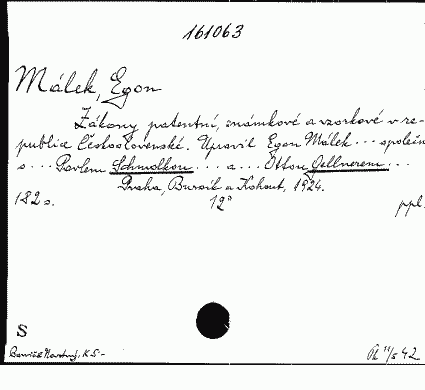 161063
Málek, Egon
Zákony patentní, známkové a vzorkové v re-
publice Československé. Upravil Egon Málek ... společn
s ... Pavlem Schmolkou ... a ... Ottou Gellnerem ...
Praha, Bursík a Kohout, 1924.
182 s. 12° ppl.
S
11/5 42